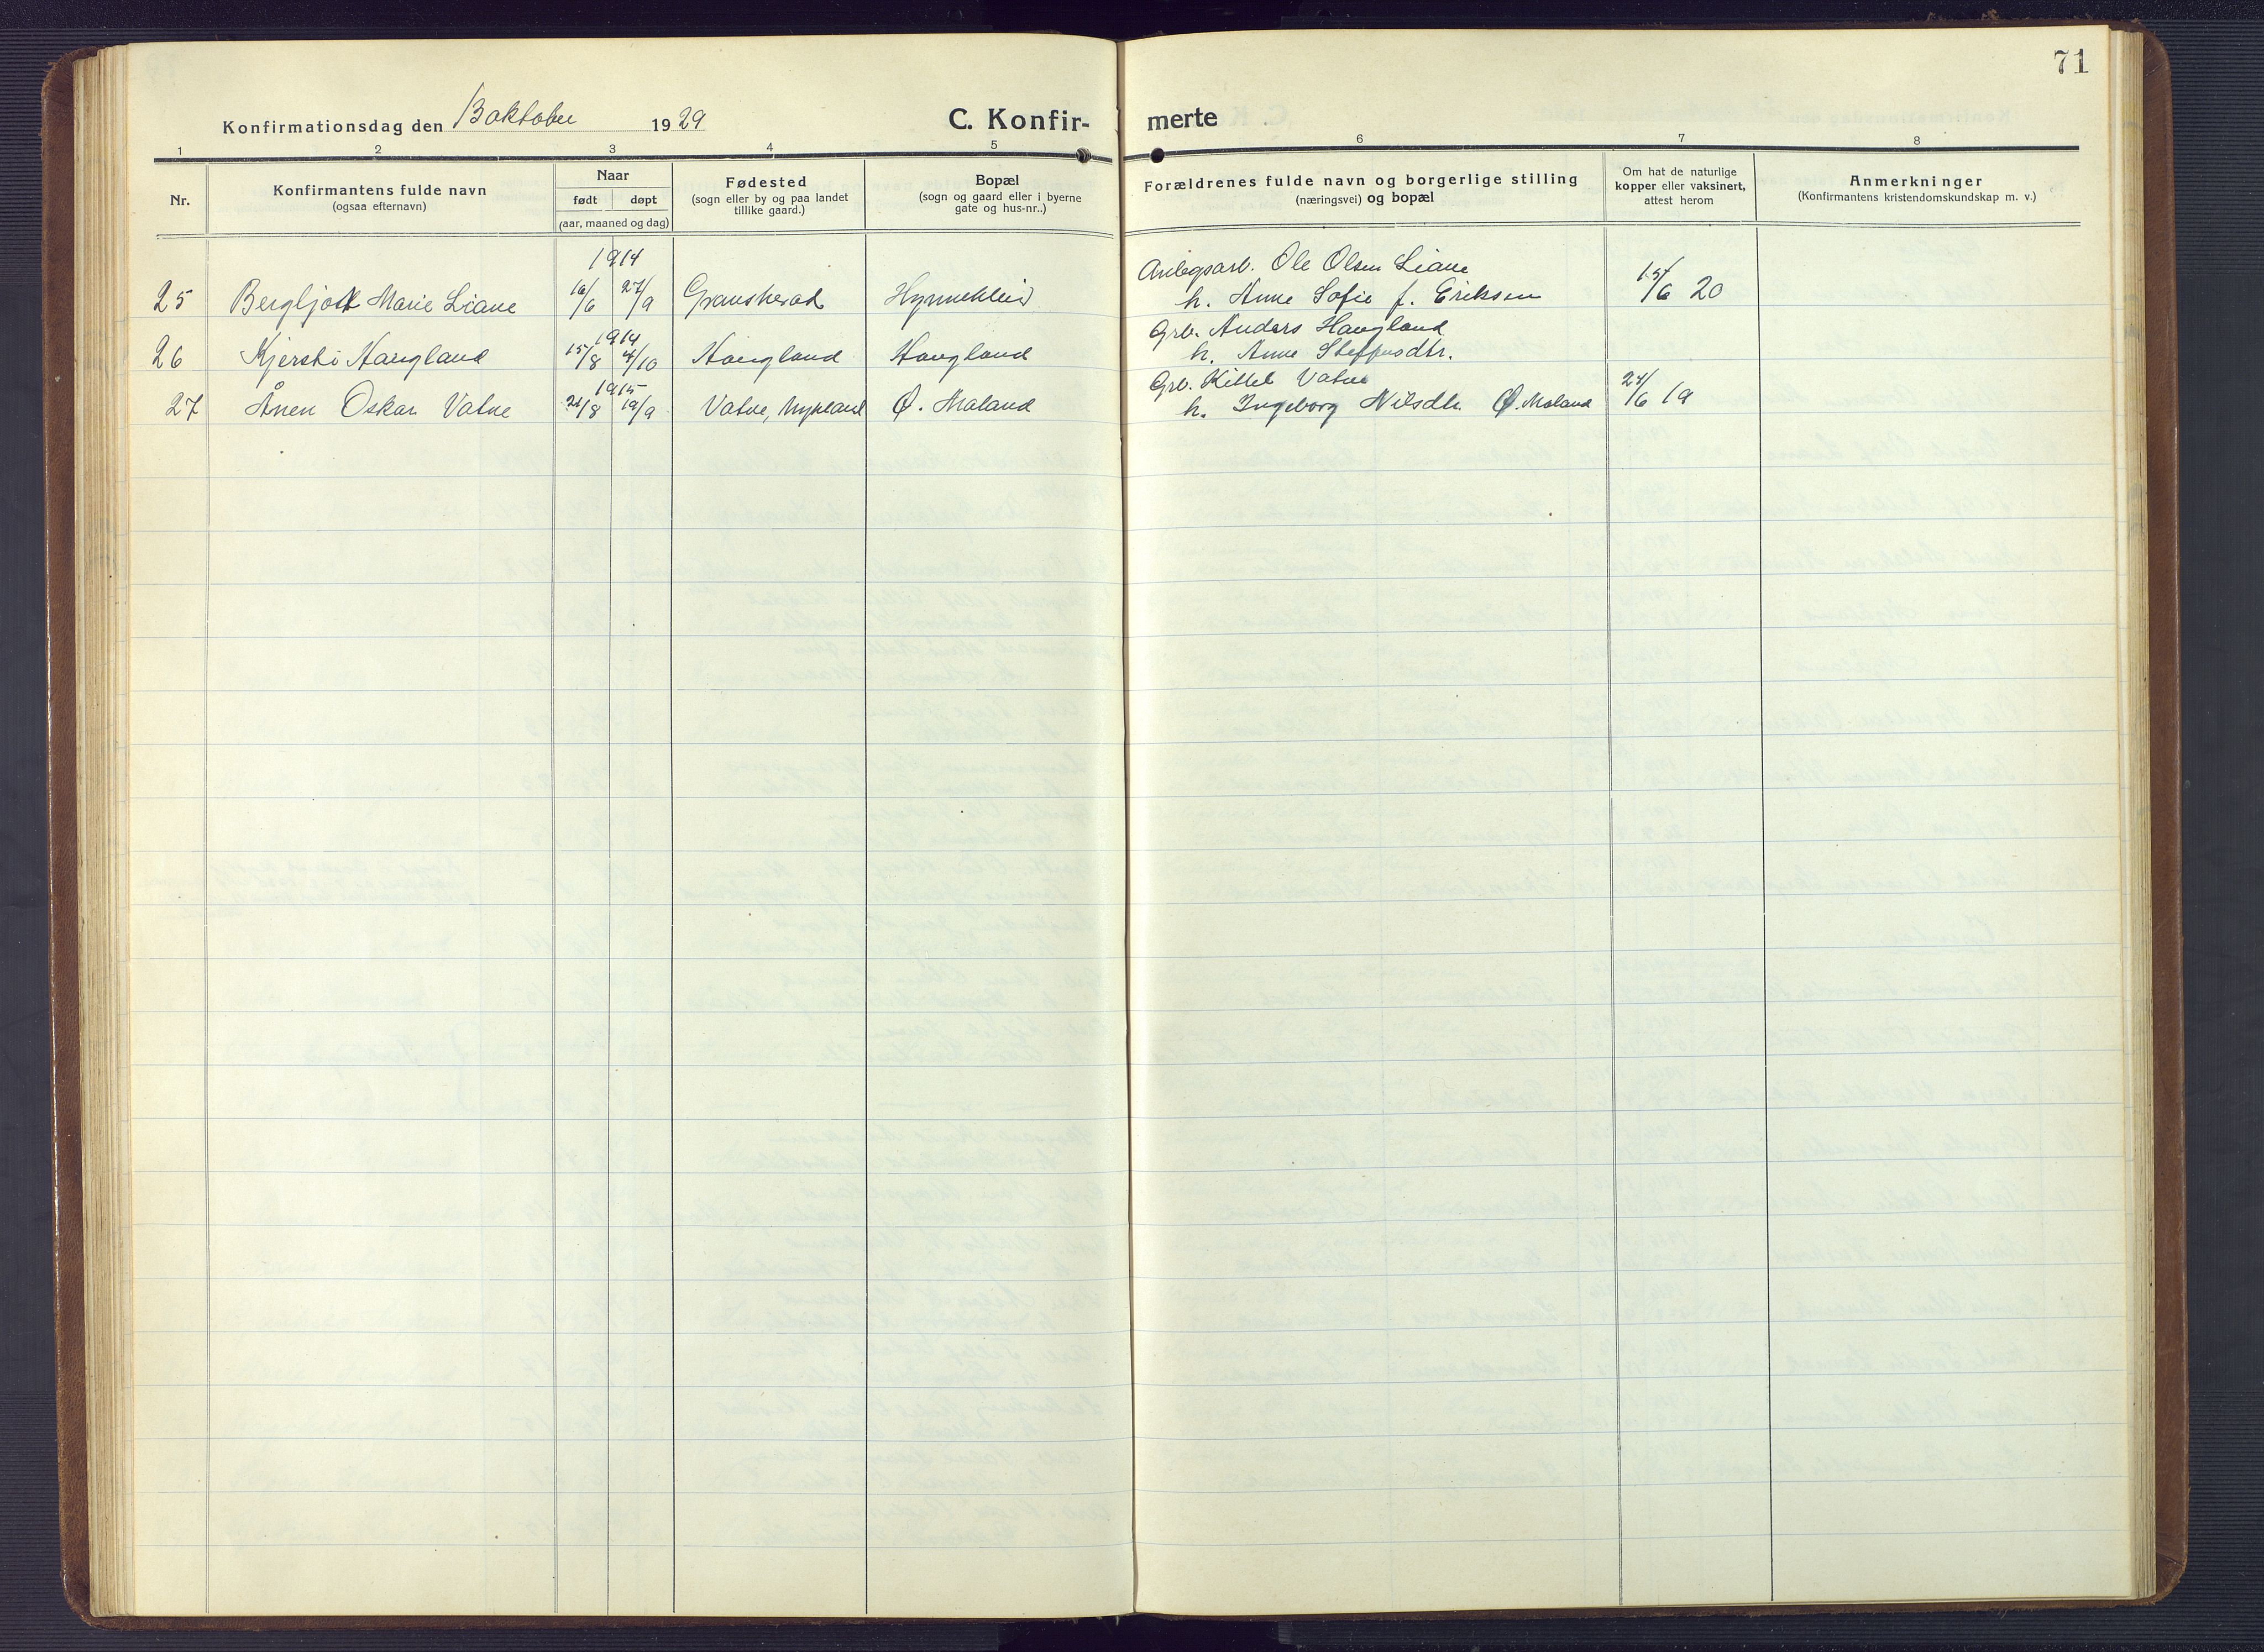 71
Konfirmationsdag den 13 oktober 1929
C. Konfir-
merte
1 2 3 4 5
6 7 8
Nr.
Konfirmantens fulde navn
(ogsaa efternavn)
Naar
født døpt
(aar, maaned og dag)
Fødested
(sogn eller by og paa landet
tillike gaard.)
Bopæl
(sogn og gaard eller i byerne
gate og hus-nr..)
Forældrenes fulde navn og borgerlige stilling
(næringsvei) og bopæl
Om hat de naturlige
kopper eller vaksinert,
attest herom
Anmerkninger
(Konfirmantens kristendomskundskap m. v.)
1914
Anlegsarb. Ole Olsen Liane
25 Bergljot Marie Liane 16/6 27/9 Gransherad
h. Anne Sofie f. Eriksen 15/6 20
1914
Grb. Anders Haugland
26 Kjersti Haugland 15/8 4/10 Haugland Haugland
h. Anne Steffensdtr.
1915
Grb. Kittel Vatne
27 Ånen Oskar Vatne 21/8 19/9 Vatne, Mykland Ø. Maland
h. Ingeborg Nilsdtr. Ø. Maland 24/6 19